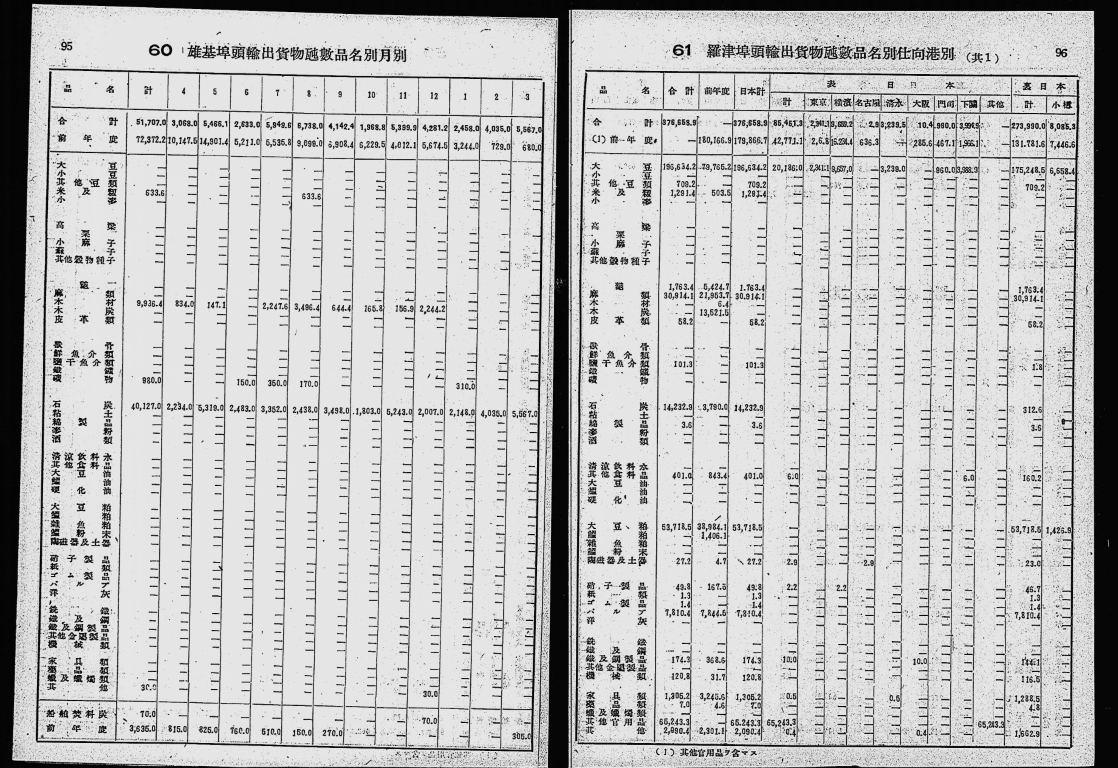 95
60 雄基埠頭輸出貨物瓲數品名別月別
品 名 計 4 5 6 7 8 9 10 11 12 1 2 3
合 計 51,707.0 3,068.0 5,466.1 2,633.0 5,949.6 6,738.0 4,142.4 1,968.8 5,399.9 4,281.2 2,458.0 4,035.0 5,567.0
前 年 度 72,372.2 10,147.5 14,901.4 5,211.0 5,535.8 9,099.0 6,908.4 6,229.5 4,012.1 5,674.5 3,244.0 729.0 680.0
大 豆
小 豆
其 他 豆 類
米 及 籾 633.6 633.6
小 麥
高 粱
粟
小 麻 子
蘇 子
其他穀物種子
麻 類
木 材 9,936.4 834.0 147.1 2,247.6 3,496.4 644.4 165.8 156.9 2,244.2
木 炭
皮 革 類
獸 骨
鮮 魚 介 類
鹽 干 魚 介 類
鑛 物 980.0 150.0 350.0 170.0 310.0
石 炭 40,127.0 2,234.0 5,319.0 2,483.0 3,352.0 2,438.0 3,498.0 1,803.0 5,243.0 2,007.0 2,148.0 4,035.0 5,567.0
粘 土
綿 製 品
麥 粉
酒 類
淸 涼 飲 料 水
其 他 食 料 品
大 豆 油
硬 化 油
大 豆 粕
陶磁器及土器
硝 子 製 品
紙 類
ゴ ム 製 品
パ ル プ
洋 灰
銑 鐵
鐵 及 鋼
鐵 及 鋼 製 品
其他金屬製品
機 械 類
家 具 類
藥 品 類
蠟 及 蠟 燭 類
其 他 30.0 30.0
船 舶 焚 料 炭 70.0 70.0
前 年 度 3,635.0 815.0 825.0 760.0 510.0 150.0 270.0 305.0
61 羅津埠頭輸出貨物瓲數品名別仕向港別 (其1)
96
品 名 合 計 前年度 日本計 表 日 本 裏 日 本
計 東京 横濱 名古屋 淸水 大阪 門司 下關 其他 計 小樽
合 計 376,658.9 — 376,658.9 85,451.3 2.9 3,239.5 10.4 273,990.0 8,085.3
(1) 前 年 度 — 180,166.9 179,866.7 42,771.1 636.3 285.6 467.1 131,781.6 7,446.6
大 豆 196,634.2 79,765.2 196,634.2 20,186.0 3,239.0 960.0 175,248.5 6,658.4
小 豆
其 他 豆 類 709.2 709.2 709.2
米 及 籾 1,291.4 503.5 1,291.4
小 麥
高 粱
粟
小 麻 子
蘇 子
其他穀物種子
1,763.4 5,424.7 1,763.4 1,763.4
麻 類 30,914.1 21,953.7 30,914.1 30,914.1
木 材 6.4
木 炭 13,521.5
皮 革 類 58.2 58.2 58.2
獸 骨
鮮 魚 介 類
鹽 干 魚 介 類 101.3 101.3 1.8
鑛 物
石 炭 14,232.9 3,790.0 14,232.9 312.6
粘 土
綿 製 品 3.6 3.6 3.6
麥 粉
酒 類
淸 涼 飲 料 水
其 他 食 料 品 401.0 843.4 401.0 6.0 6.0 160.2
大 豆 油
硬 化 油
大 豆 粕 53,718.5 38,984.1 53,718.5 53,718.5 1,426.9
1,406.1
陶磁器及土器 27.2 4.7 27.2 2.9 2.9 23.0
硝 子 製 品 49.8 167.5 49.8 2.2 2.2 46.7
紙 類 1.3 1.3 1.3
ゴ ム 製 品 1.4 1.4 1.4
パ ル プ 7,810.4 7,844.5 7,810.4 7,810.4
洋 灰
銑 鐵
鐵 及 鋼
鐵 及 鋼 製 品 174.3 368.6 174.3 10.0 10.0 144.1
其他金屬製品
機 械 類 120.8 31.7 120.8 116.5
家 具 類 1,305.2 3,245.6 1,305.2 0.5 0.5 1,288.5
藥 品 類 7.0 4.6 7.0 4.8
蠟 及 蠟 燭 類
其 他 官 用 品 65,243.3 65,243.3 65,243.3 65,243.3
其 他 2,090.4 2,301.1 2,090.4 0.4 0.4 1,662.9
(1) 其他官用品ヲ含マス